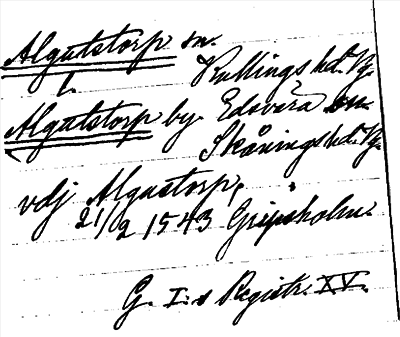 Algutstorp sn.
Kullings hd. Vg.
l.
Algutstorp by. Edsvära sn.
Skånings hd. Vg.
vdj Algustorp,
21/2 1543 Gripsholm.
G. I:s Registr. XV.